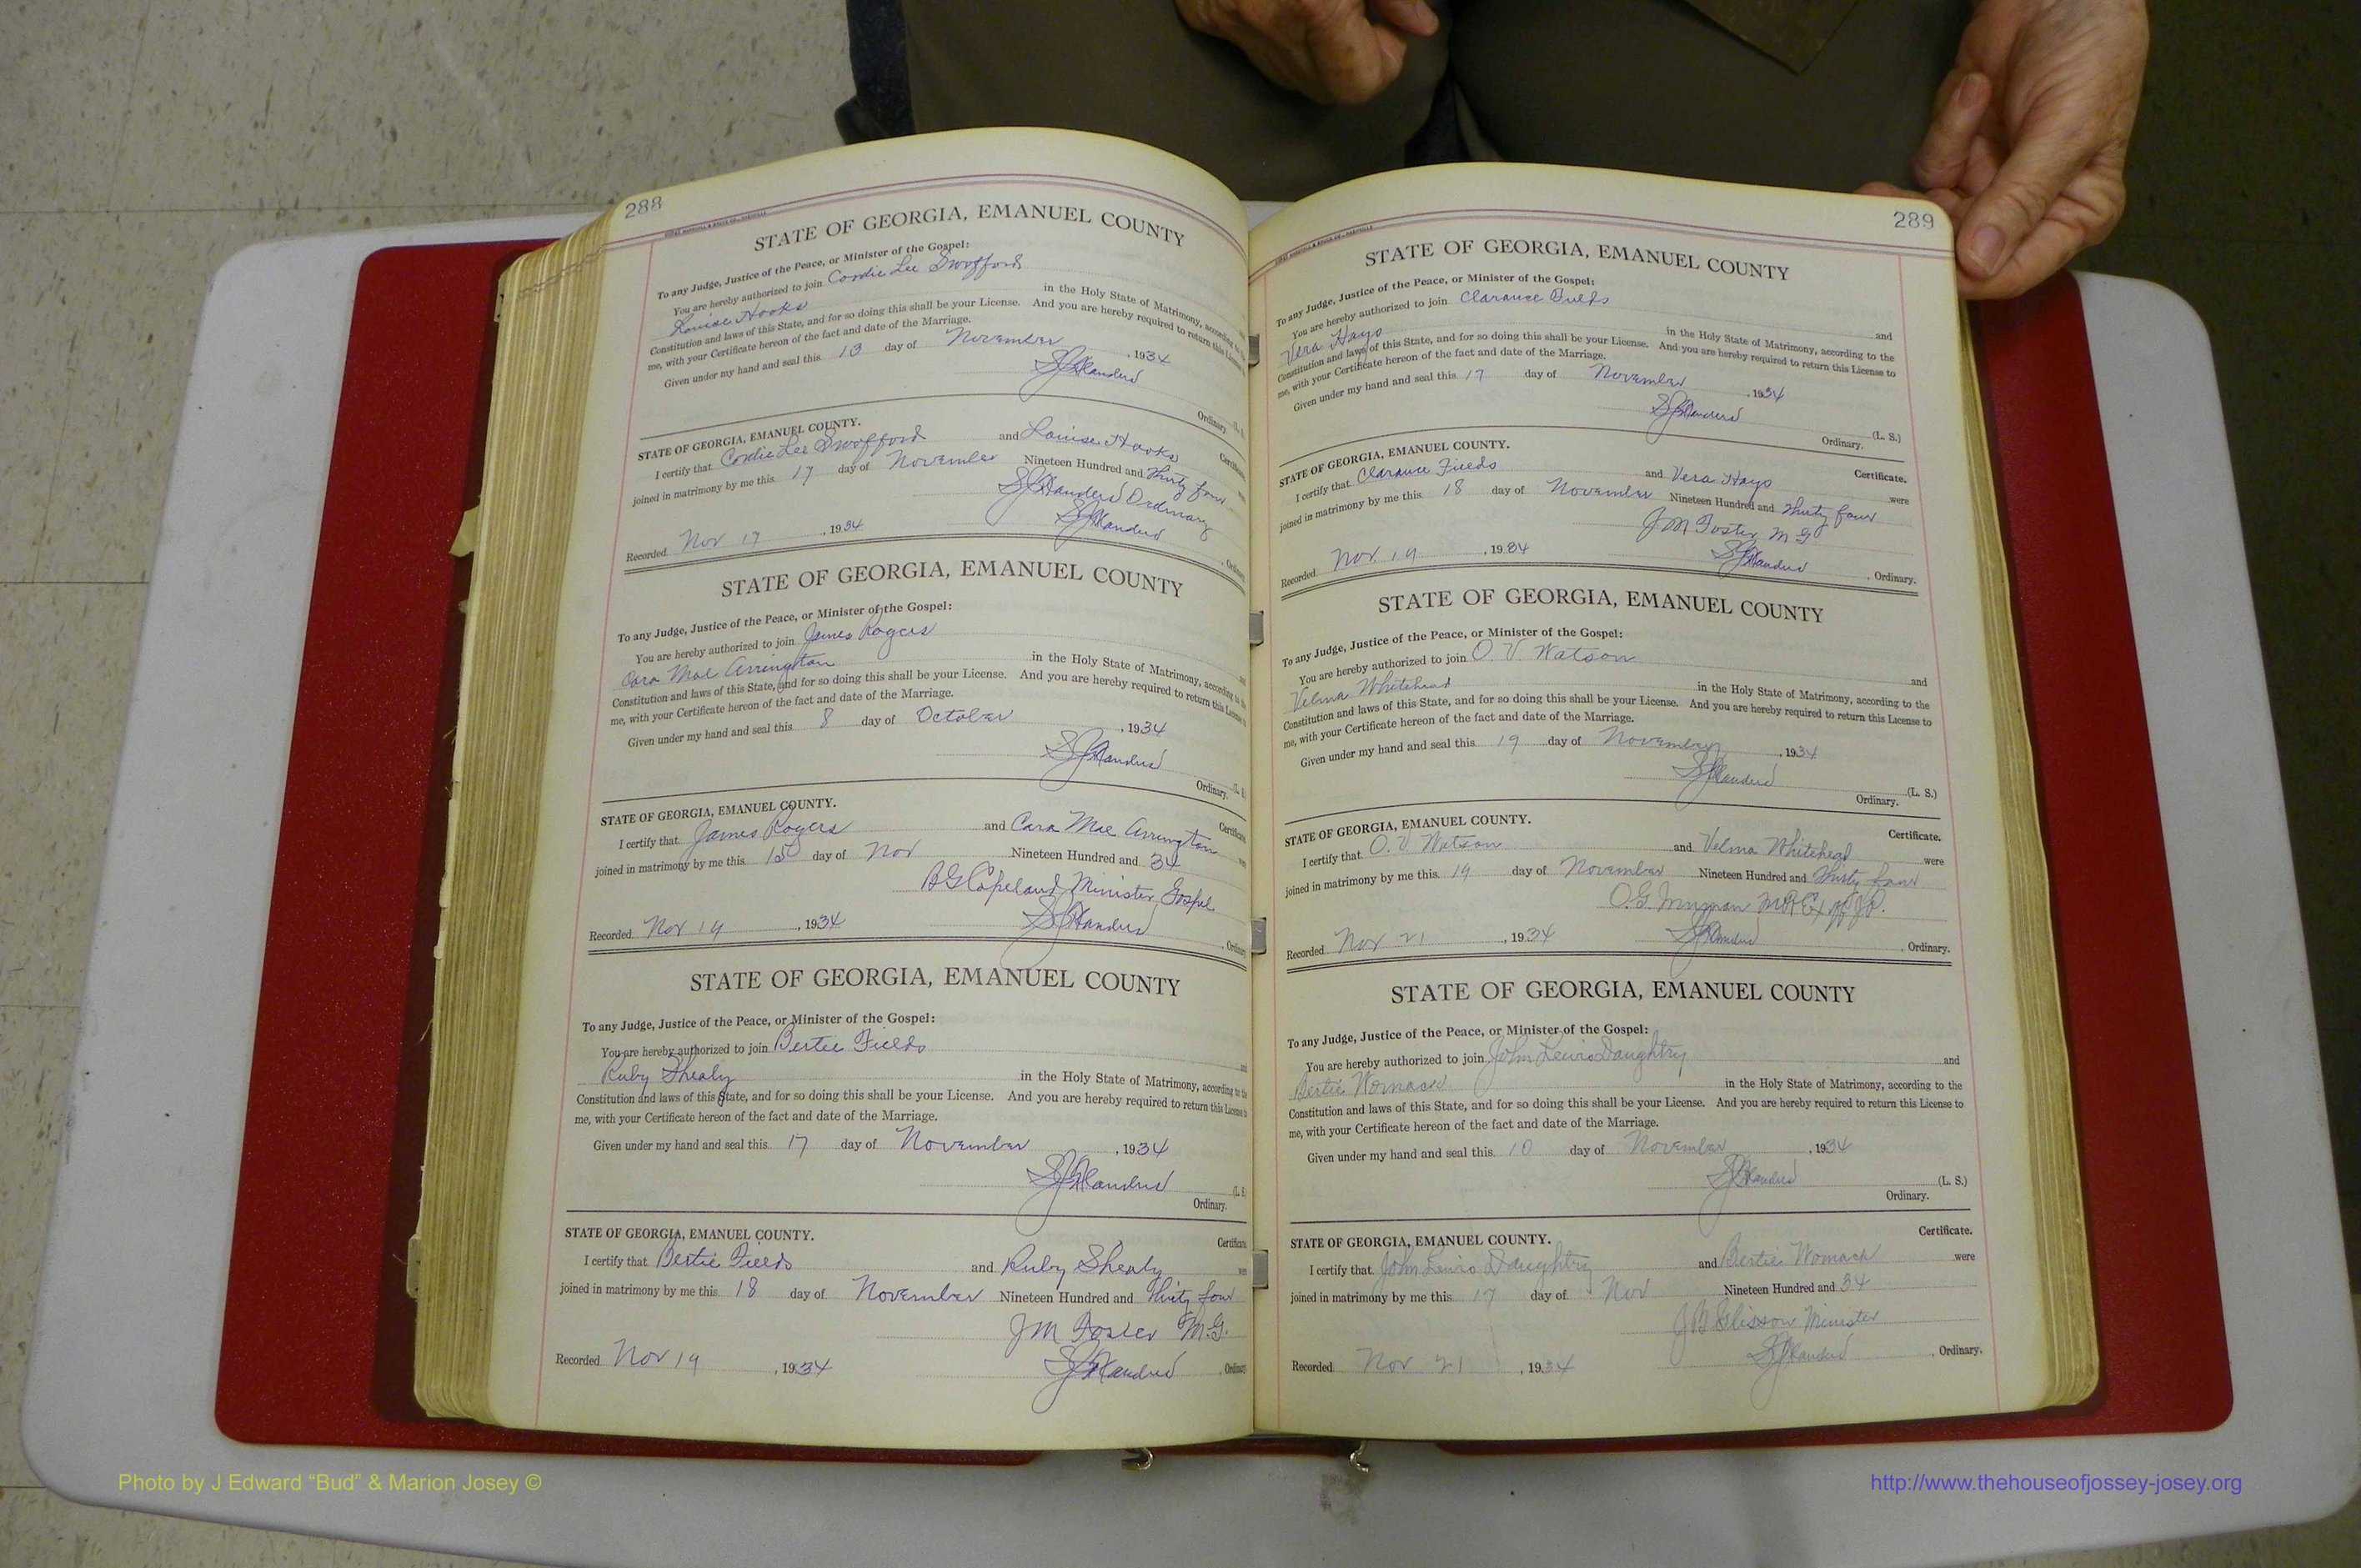 288
STATE OF GEORGIA, EMANUEL COUNTY
To any Judge, Justice of the Peace, or Minister of the Gospel:
You are hereby authorized to join Cordie Lee Swofford
and
Louise Hooks in the Holy State of Matrimony, according to the
Constitution and laws of this State, and for so doing this shall be your License. And you are hereby required to return this License to
me, with your Certificate hereon of the fact and date of the Marriage.
Given under my hand and seal this 13 day of November, 1934
(L. S.)
Ordinary.
STATE OF GEORGIA, EMANUEL COUNTY. Certificate
I certify that Cordie Lee Swofford and Louise Hooks
joined in matrimony by me this 17 day of November Nineteen Hundred and Thirty four
Ordinary
Recorded Nov 17, 1934, Ordinary
STATE OF GEORGIA, EMANUEL COUNTY
To any Judge, Justice of the Peace, or Minister of the Gospel:
You are hereby authorized to join James Rogers
Cara Mae Arrington in the Holy State of Matrimony, according to the
Constitution and laws of this State, and for so doing this shall be your License. And you are hereby required to return this License to
me, with your Certificate hereon of the fact and date of the Marriage.
Given under my hand and seal this 8 day of October, 1934
(L. S.
Ordinary.
STATE OF GEORGIA, EMANUEL COUNTY. Certificate
I certify that James Rogers and Cara Mae Arrington
joined in matrimony by me this 15 day of Nov Nineteen Hundred and 34
Copeland Minister Gospel
Recorded Nov 19, 1934, Ordinary
STATE OF GEORGIA, EMANUEL COUNTY
To any Judge, Justice of the Peace, or Minister of the Gospel:
You are hereby authorized to join Bertie Fields
Ruby Shealy in the Holy State of Matrimony, according to the
Constitution and laws of this State, and for so doing this shall be your License. And you are hereby required to return this License to
me, with your Certificate hereon of the fact and date of the Marriage.
Given under my hand and seal this 17 day of November, 1934
(L. S.
Ordinary.
STATE OF GEORGIA, EMANUEL COUNTY. Certificate
I certify that Bertie Fields and Ruby Shealy
joined in matrimony by me this 18 day of November Nineteen Hundred and Thirty four
J M Foster M.G.
Recorded Nov 19, 1934, Ordinary
289
STATE OF GEORGIA, EMANUEL COUNTY
To any Judge, Justice of the Peace, or Minister of the Gospel:
You are hereby authorized to join Clarance Fields and
Vera Hays in the Holy State of Matrimony, according to the
Constitution and laws of this State, and for so doing this shall be your License. And you are hereby required to return this License to
me, with your Certificate hereon of the fact and date of the Marriage.
Given under my hand and seal this 17 day of November, 1934
(L. S.)
Ordinary.
STATE OF GEORGIA, EMANUEL COUNTY. Certificate.
I certify that Clarance Fields and Vera Hays were
joined in matrimony by me this 18 day of November Nineteen Hundred and Thirty four
J M Foster M G
Recorded Nov. 19, 1934, Ordinary.
STATE OF GEORGIA, EMANUEL COUNTY
To any Judge, Justice of the Peace, or Minister of the Gospel:
You are hereby authorized to join O. V Watson and
Velma Whitehead in the Holy State of Matrimony, according to the
Constitution and laws of this State, and for so doing this shall be your License. And you are hereby required to return this License to
me, with your Certificate hereon of the fact and date of the Marriage.
Given under my hand and seal this 19 day of November, 1934
(L. S.)
Ordinary.
STATE OF GEORGIA, EMANUEL COUNTY. Certificate.
I certify that O. V. Watson and Velma Whitehead were
joined in matrimony by me this 19 day of November Nineteen Hundred and Thirty four
J.P.
Recorded Nov 21, 1934, Ordinary.
STATE OF GEORGIA, EMANUEL COUNTY
To any Judge, Justice of the Peace, or Minister of the Gospel:
You are hereby authorized to join John Lewis Daughtry and
Bertie Womack in the Holy State of Matrimony, according to the
Constitution and laws of this State, and for so doing this shall be your License. And you are hereby required to return this License to
me, with your Certificate hereon of the fact and date of the Marriage.
Given under my hand and seal this 10 day of November, 1934
(L. S.)
Ordinary.
Certificate.
STATE OF GEORGIA, EMANUEL COUNTY.
I certify that John Lewis Daughtry and Bertie Womack were
joined in matrimony by me this 17 day of Nov Nineteen Hundred and 34
Glisson Minister
Recorded Nov 21, 1934, Ordinary.
Photo by J Edward “Bud” & Marion Josey ©
http://www.thehouseofjossey-josey.org